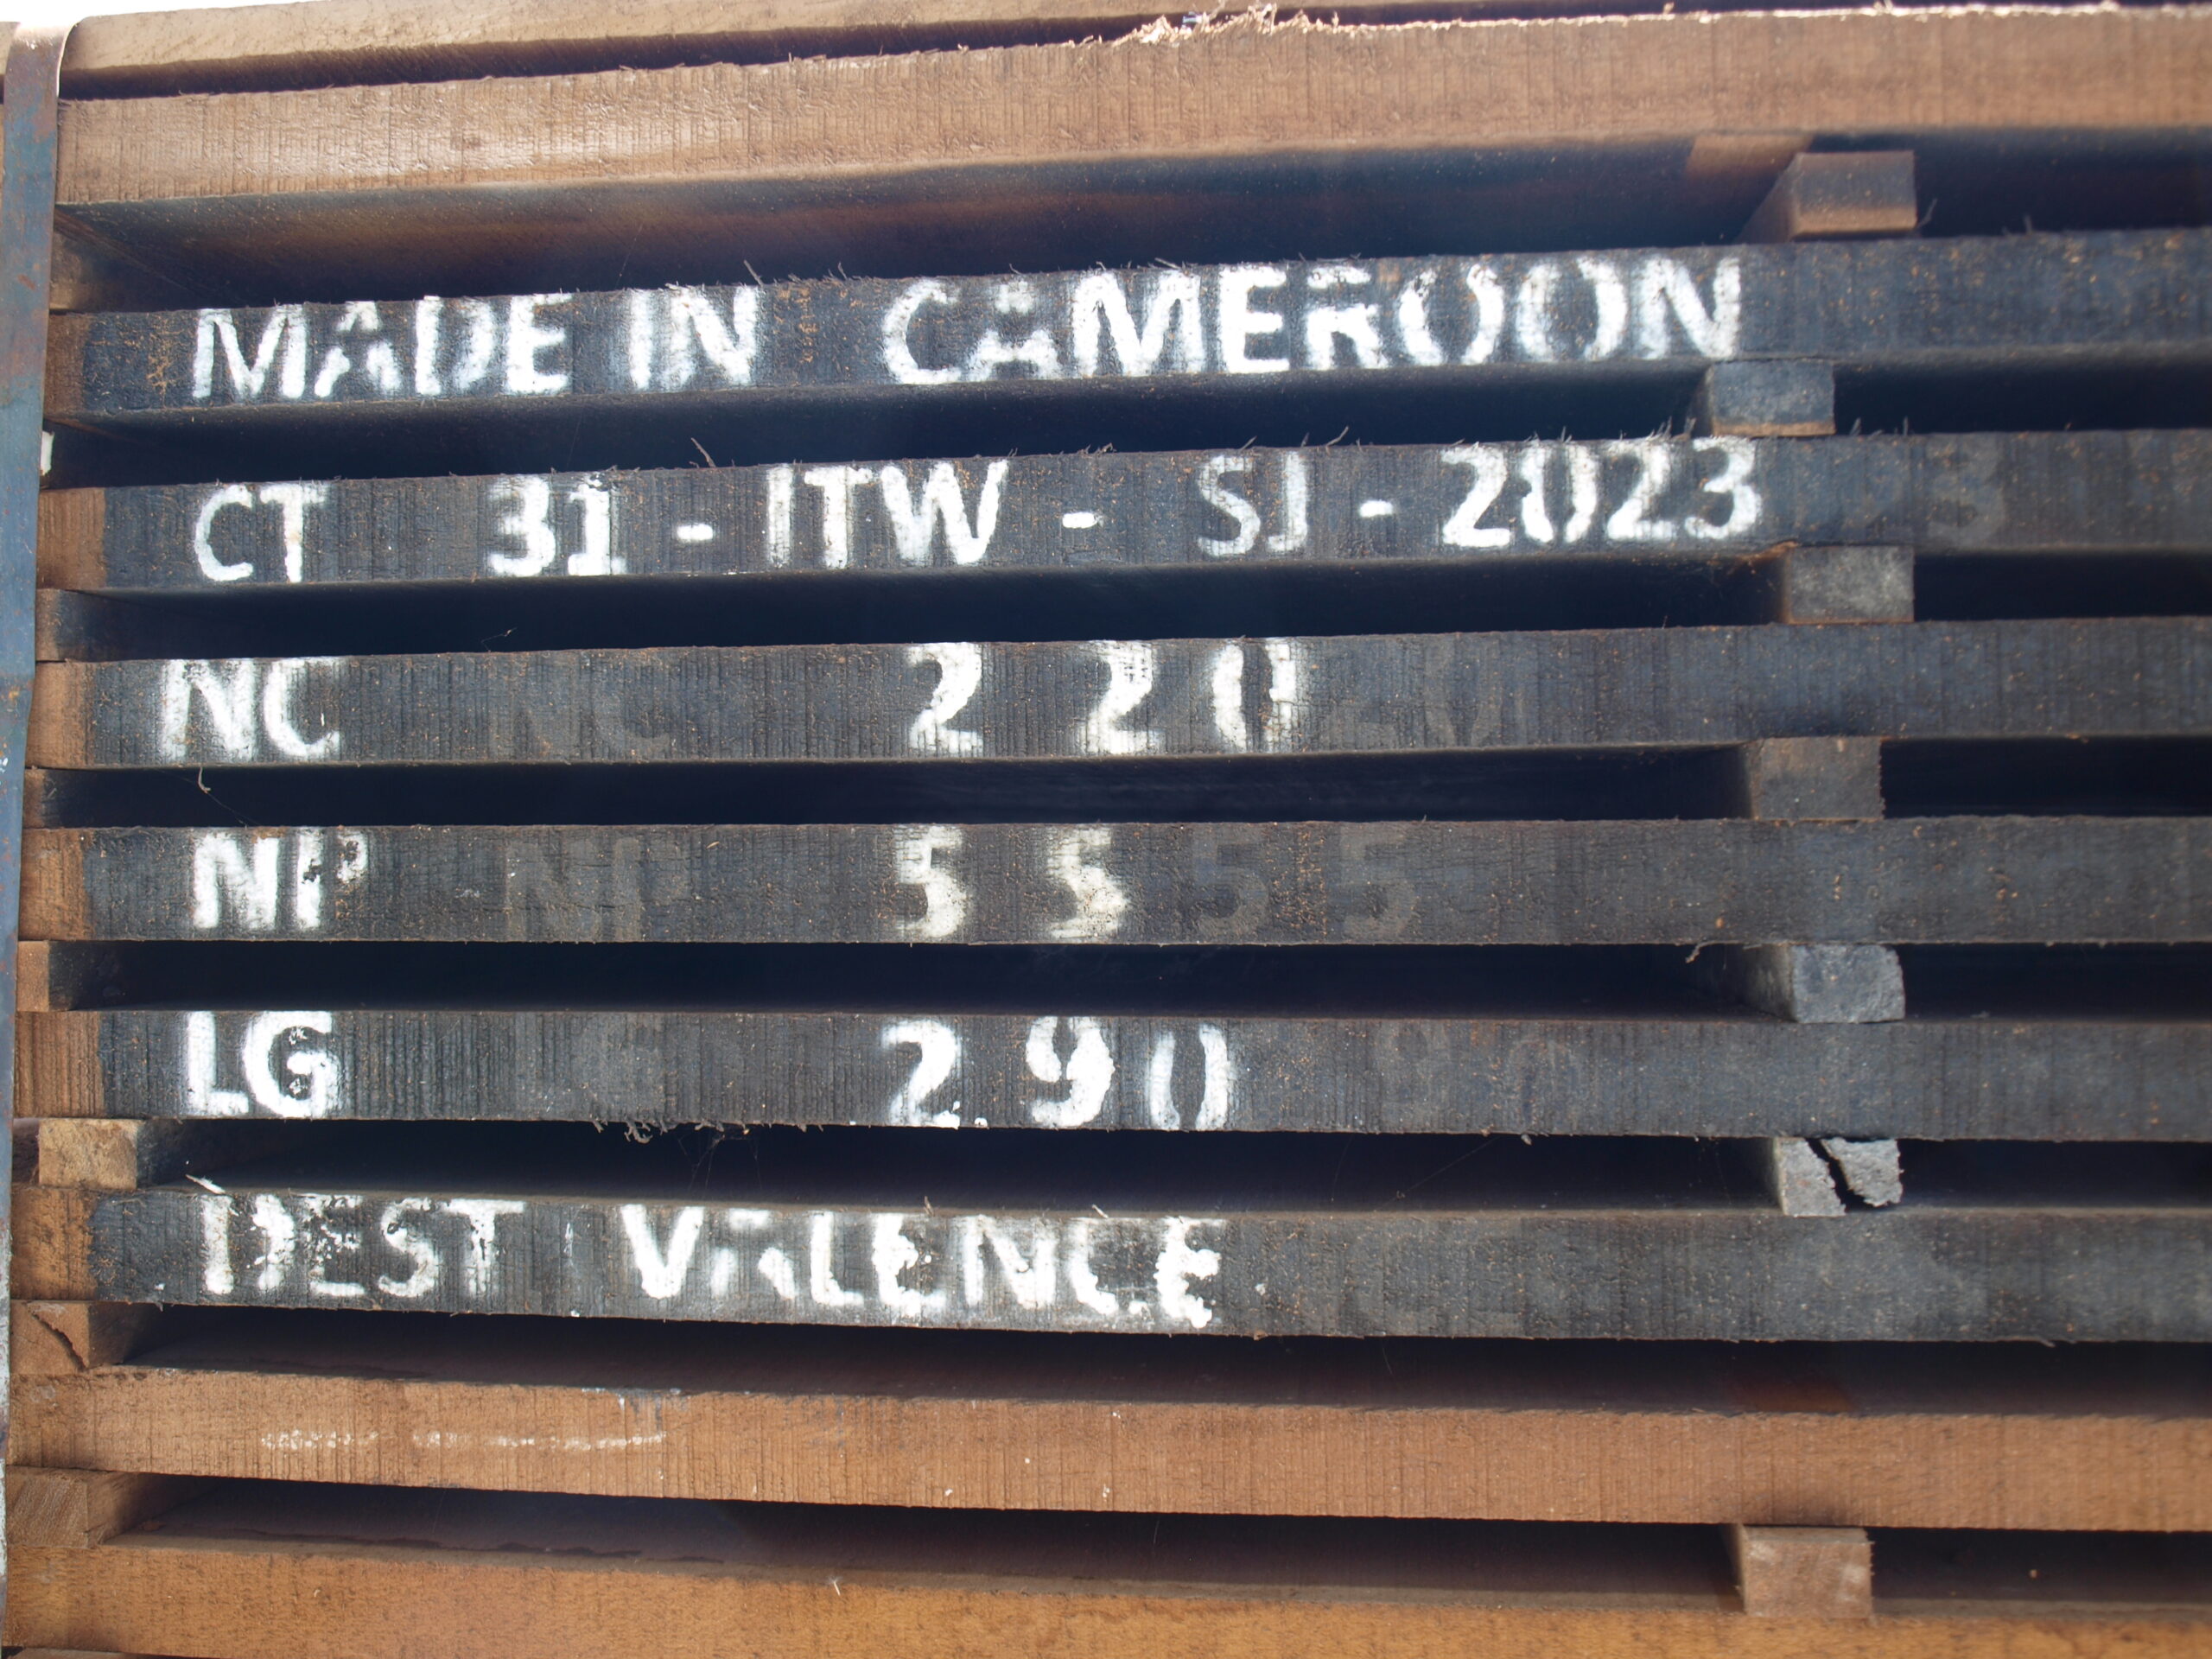 MADE IN CAMEROON
CT 31 - ITW - SJ - 2023
NC 220
NP 55
LG 290
DEST VALENCE